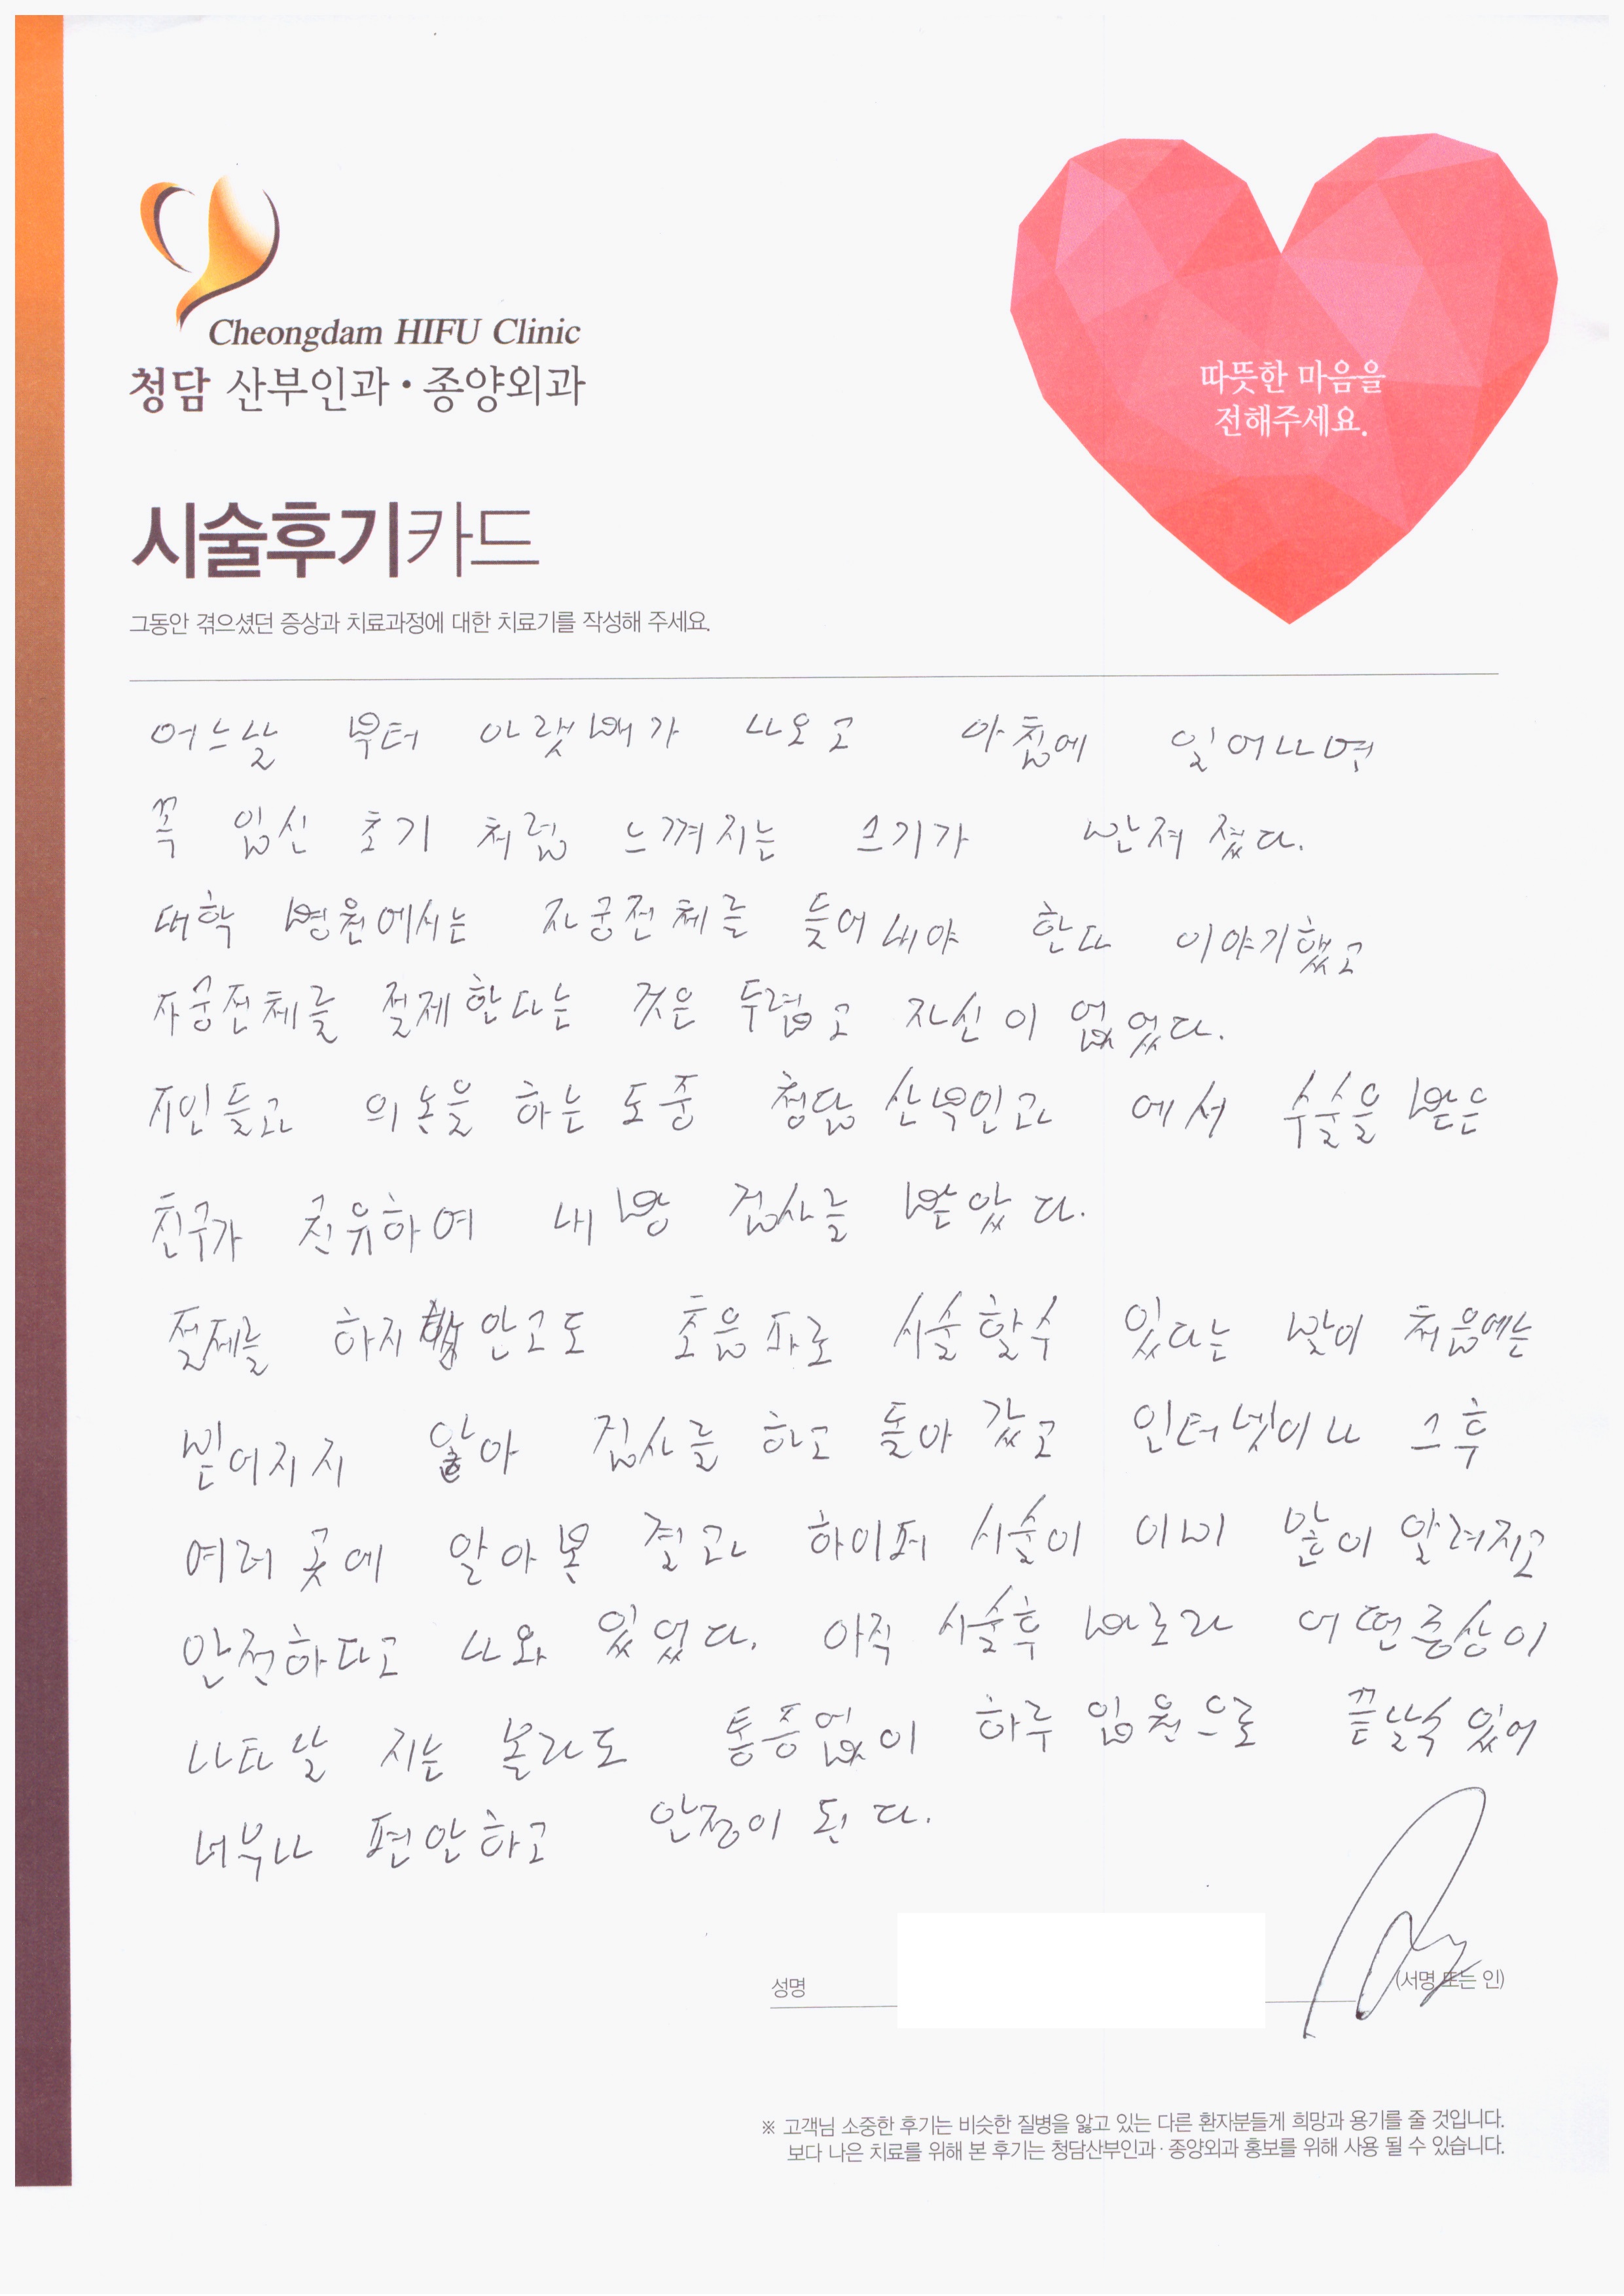 Cheongdam HIFU Clinic
청담 산부인과·종양외과
따뜻한 마음을
전해주세요.
시술후기카드
그동안 겪으셨던 증상과 치료과정에 대한 치료기를 작성해 주세요.
어느날 부터 아랫배가 나오고 아침에 일어나면
꼭 임신 초기 처럼 느껴지는 크기가 만져 졌다.
대학 병원에서는 자궁전체를 들어내야 한다 이야기했고
자궁전체를 절제한다는 것은 두렵고 자신이 없었다.
지인들과 의논을 하는 도중 청담 산부인과 에서 수술을 받은
친구가 권유하여 내방 검사를 받았다.
절제를 하지 안고도 초음파로 시술할수 있다는 말이 처음에는
믿어지지 않아 검사를 하고 돌아 갔고 인터넷이나 그후
여러 곳에 알아본 결과 하이퍼 시술이 이미 많이 알려지고
안전하다고 나와 있었다. 아직 시술후 바로라 어떤증상이
나타날 지는 몰라도 통증없이 하루 입원으로 끝날수 있어
너무나 편안하고 안정이 된다.
성명
(서명 또는 인)
※ 고객님 소중한 후기는 비슷한 질병을 앓고 있는 다른 환자분들게 희망과 용기를 줄 것입니다.
보다 나은 치료를 위해 본 후기는 청담산부인과·종양외과 홍보를 위해 사용 될 수 있습니다.